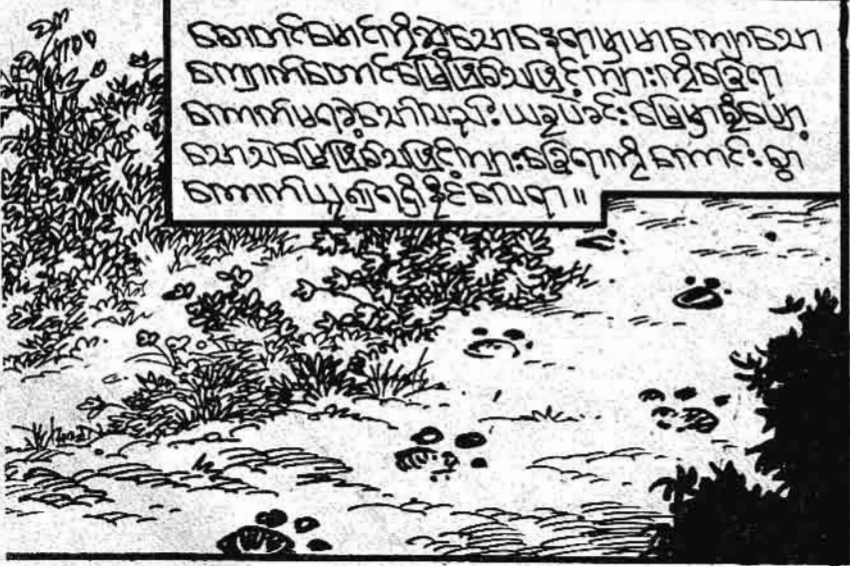 အောတင်မောင်ကိုဆွဲသောနေရာမှာမာကျောသော
ကျောက်တောင်မြေဖြစ်သဖြင့်ကျားကိုခြေရာ
ကောက်မရခဲ့သော်လည်း ယခုပဲခင်းမြေမှာမူပျော့
သောသဲမြေဖြစ်သဖြင့်ကျားခြေရာကို ကောင်းစွာ
ကောက်ယူ၍ရရှိနိုင်လေရာ။